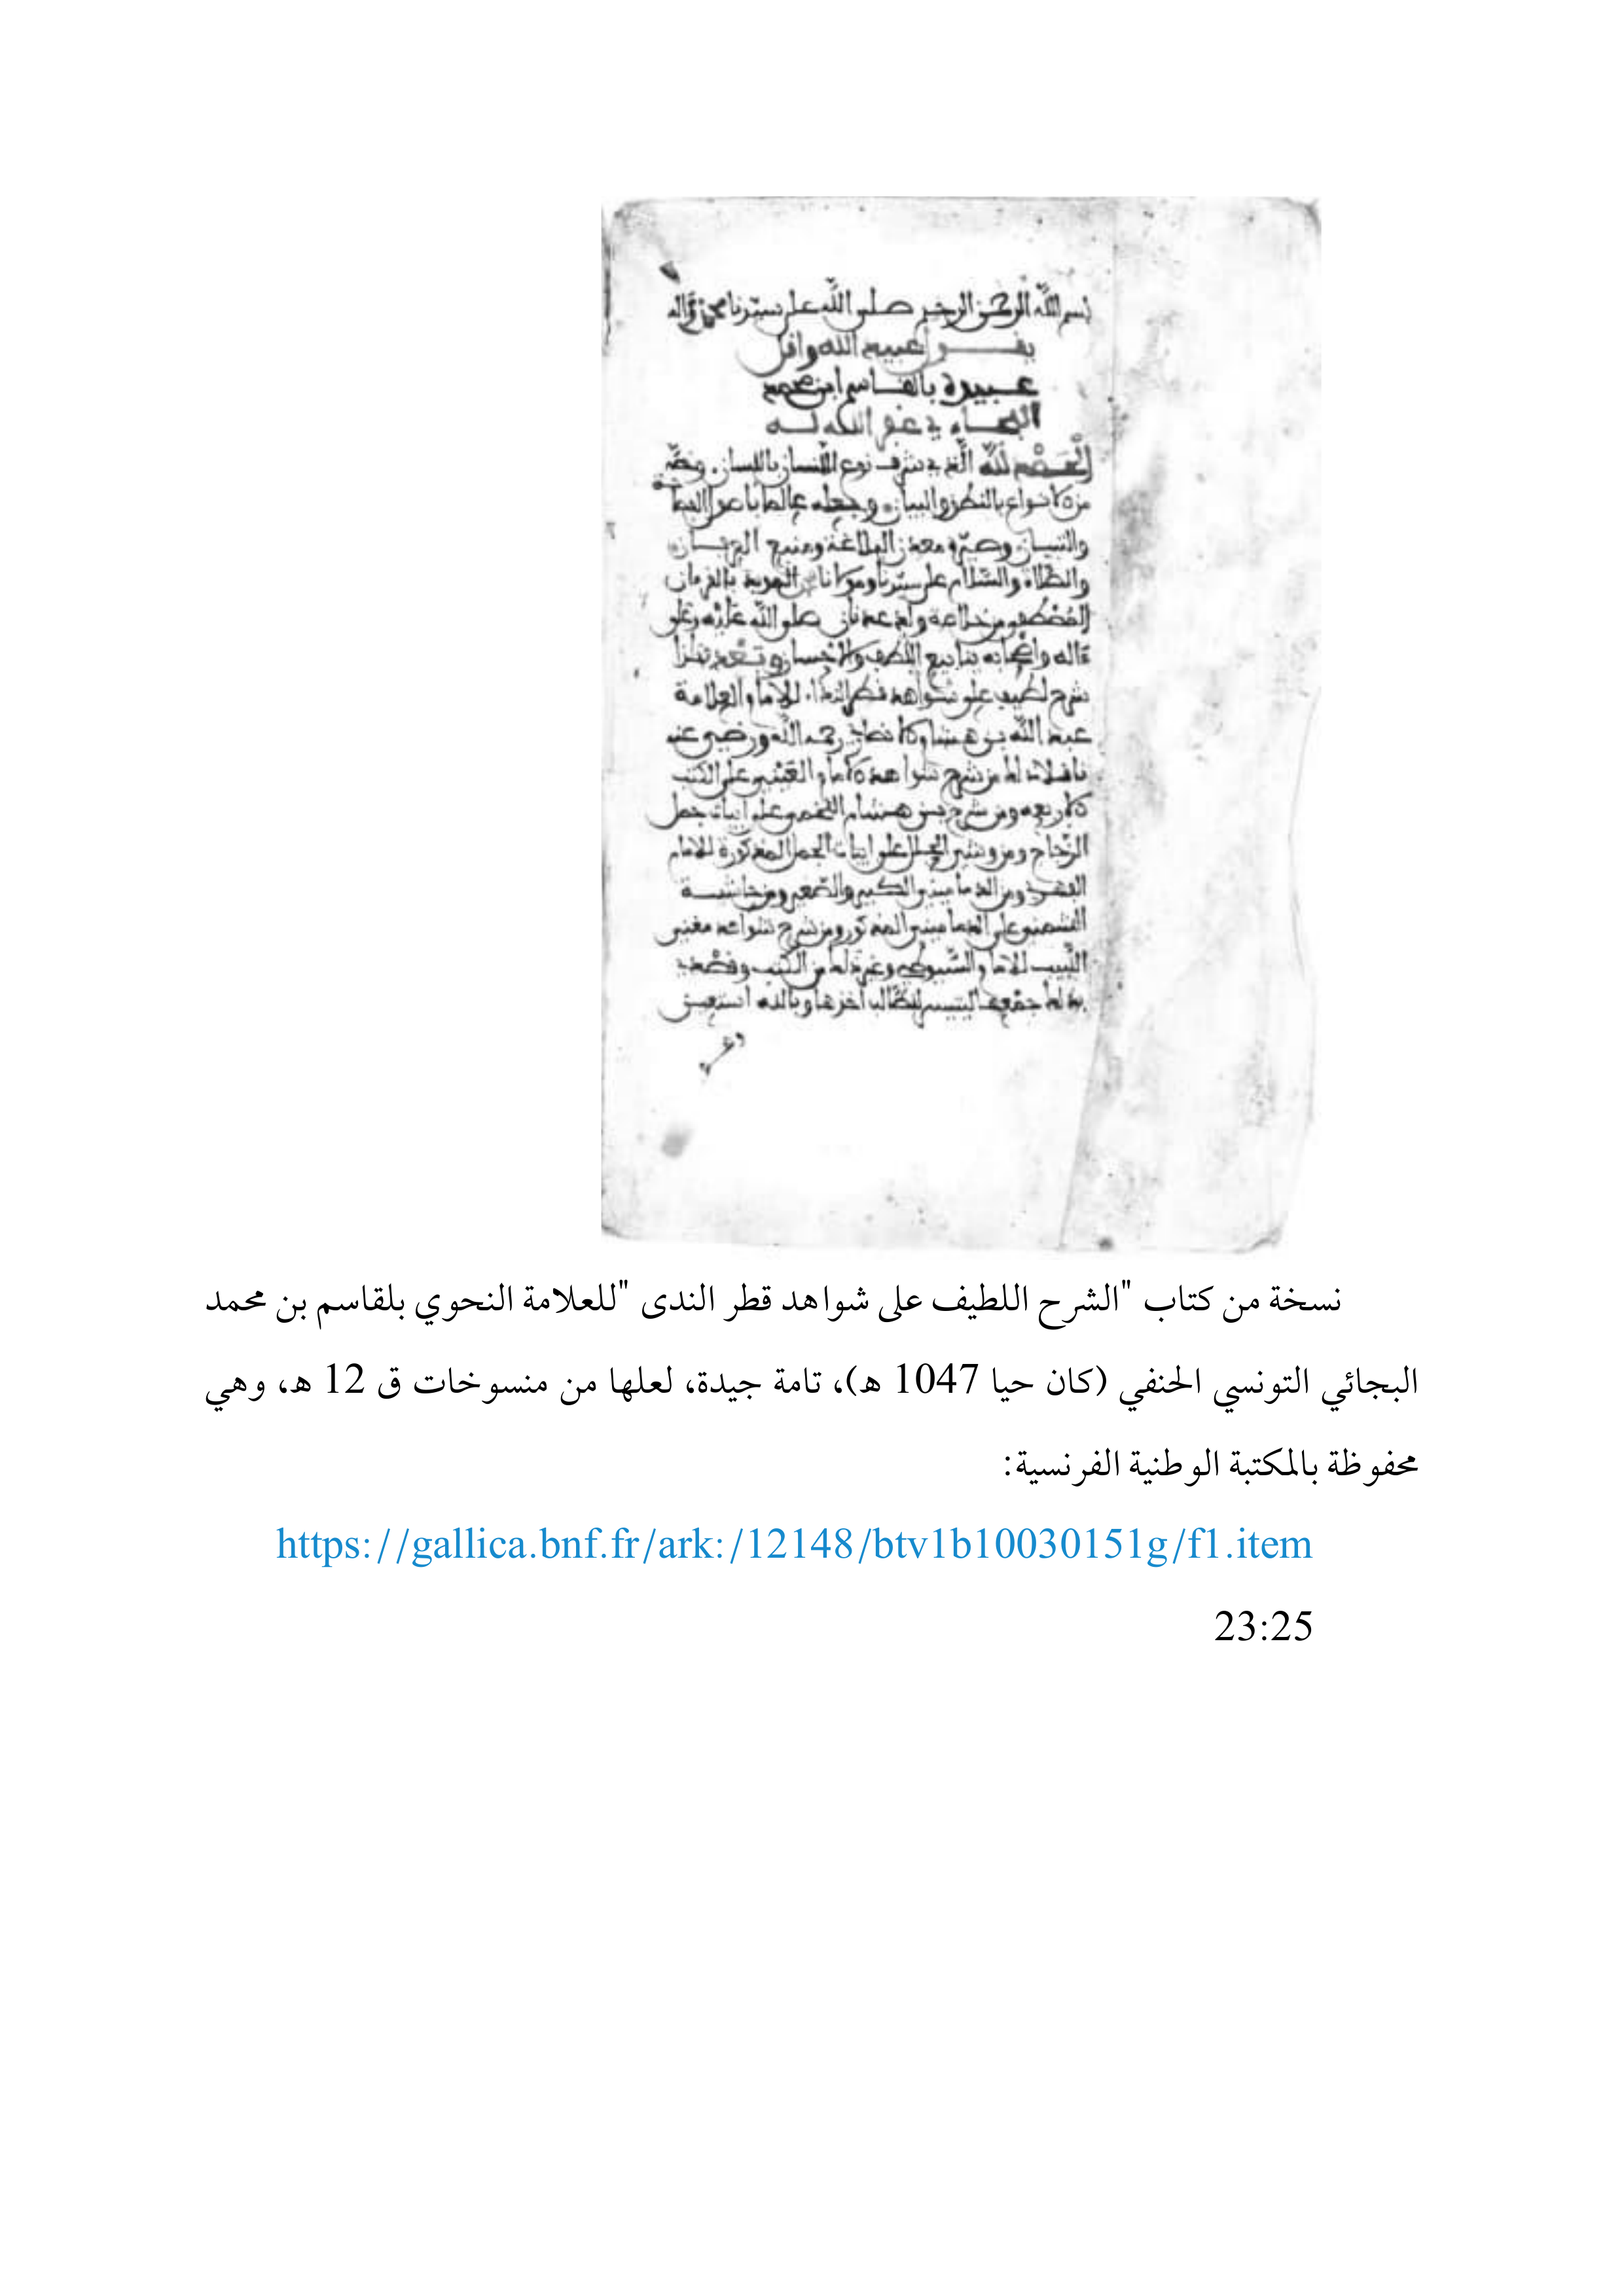 بسم الله الرحمن الرحيم صلى الله على سيدنا محمد وآله
يقول عبيد الله وأقل
عبيده بالقاسم ابن محمد
البجاءي غفر الله له
الحمد لله الذي شرف نوع الانسان باللسان
من الانواع بالنطق والبيان وجعله عالما
والتبيان وصيره معدن البلاغة ومنبع
والصلاة والسلام على سيدنا ومولانا المويد بالفرقان
المصطفى من خلاصة ولد عدنان صلى الله عليه وعلى
ءاله وأصحابه ينابيع اللطف والاحسان وبعد فهذا
شرح لطيف على شواهد قطر الندا للامام العلامة
عبد الله بن هشام الانصاري رحمه الله ورضي عنه
ناقلا ذلك من شرح شواهد الامام العيني على الكتب
الاربعة ومن شرح بن هشام اللخمي على ابيات جمل
الزجاج ومن وشي الحلل على ابيات الجمل المذكورة للامام
الفهري ومن الدماميني الكبير والصغير ومن حاشية
الشمني على الدماميني المذكور ومن شرح شواهد مغني
اللبيب للامام السيوطي وغير ذلك من الكتب وقصدي
بذلك جمعها ليتيسر للطالب أخذها وبالله استعين
نسخة من كتاب "الشرح اللطيف على شواهد قطر الندى "للعلامة النحوي بلقاسم بن محمد
البجائي التونسي الحنفي (كان حيا 1047 هـ)، تامة جيدة، لعلها من منسوخات ق 12 هـ، وهي
محفوظة بالمكتبة الوطنية الفرنسية:
https://gallica.bnf.fr/ark:/12148/btv1b10030151g/f1.item
23:25